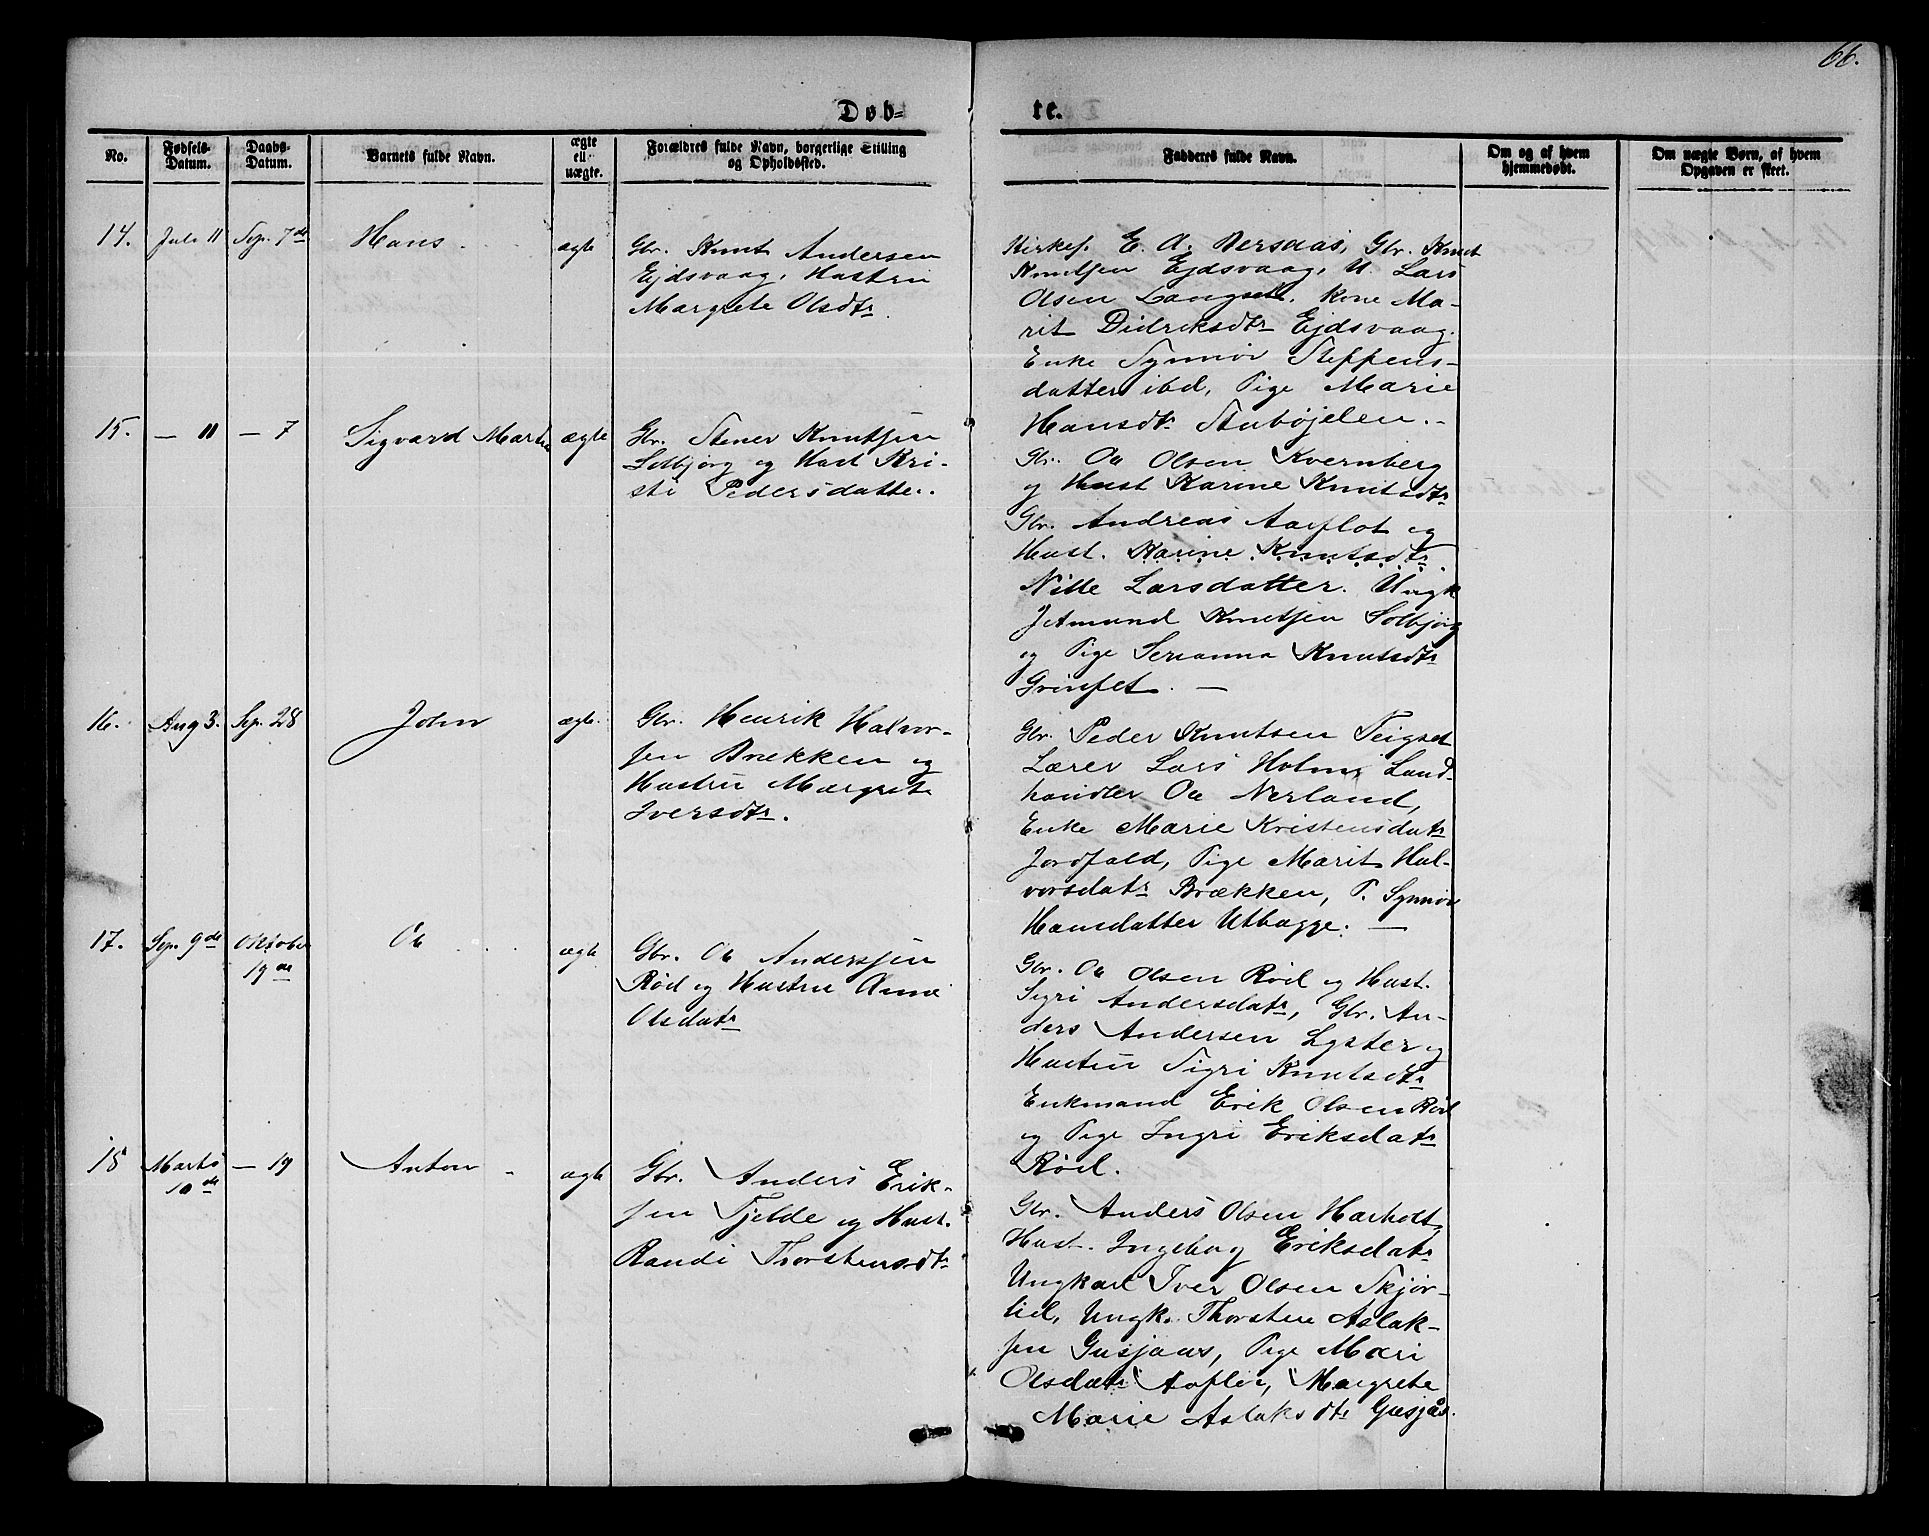 66.
Døb=
te.
No.
Fødsels-
Datum.
Daabs-
Datum.
Barnets fulde Navn.
ægte
ell.
uægte.
Forældres fulde Navn, borgerlige Stilling
og Opholdssted.
Fadderes fulde Navn.
Om og af hvem
hjemmedøbt.
Om uægte Børn, af hvem
Opgaven er skeet.
14.
Juli 11
Sep. 7de
Hans
ægte
Gbr. Knut Andersen
Ejdsvaag, Hustru
Margrete Olsdtr.
Kirkes. E. A. Gbr. Knut
Knutsen Ejdsvaag, U. Lars
Olsen Langset. Kone Ma-
rit Didriksdtr Ejdsvaag.
Enke Synnøv Steffens-
datter ibd, Pige Marie
Hansdtr Stubøjelen.
15.
— 11
— 7
Sigvard Martin
ægte
Gbr. Stener Knutsen
Solbjørg og Hust Kri-
sti Pedersdatter.
Gbr. Ole Olsen Kvernberg
og Hust Karine Knutsdtr
Gbr. Andreas Aarflot og
Hust. Karine Knutsdtr.
Nille Larsdatter. Ungk
Amund Knutsen Solbjørg
og Pige Serianna Knutsdtr
Grinset. —
16.
Aug 3.
Sep. 28
John
ægte.
Gbr. Henrik Halvor-
sen Brækken og
Hustru Margrete
Iversdtr.
Gbr. Peder Knutsen Teigset
Lærer Lars Holm, Land-
handler Ole Nerland,
Enke Marie Kristensdatr
Jordfald, Pige Marit Hal-
vorsdatr Brækken, P. Synnøv
Hansdatter Uthagge. —
17.
Sep. 9de
Oktober
19de
Ole
ægte
Gbr. Ole Anderssen
Rød og Hustru Anne
Olsdatr
Gbr. Ole Olsen Rød og Hust.
Sigri Andersdatr, Gbr. An-
ders Andersen Lyster og
Hustru Sigri Knutsdtr
Enkmand Erik Olsen Rød
og Pige Ingri Eriksdatr
Rød.
18
Marts
10de
— 19
Anton
ægte
Gbr. Anders Erik-
sen Tjelde og Hust.
Randi Thorstensdtr
Gbr. Anders Olsen Harholt
Hust. Ingebog Eriksdatr
Ungkarl Iver Olsen Skjør-
lid, Ungk. Thorsten Aslak-
sen Gusjaas, Pige Mari
Olsdatr Margrete
Marie Aslaksdtr Gusjås.